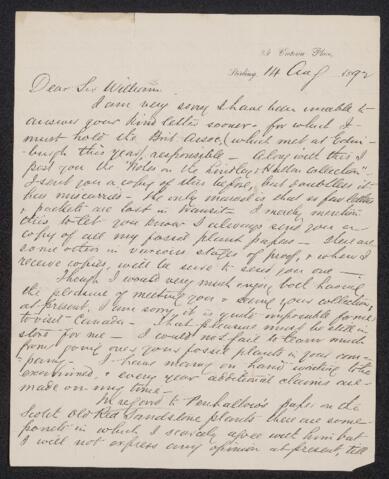 24 Victoria Place,
Stirling, 14 Aug 1892
Dear Sir William
I am very sorry I have been unable to
answer your kind letter sooner - for which I
must hold the Brit. Assoc. (which met at Edin-
burgh this year) responsible - Along with this I
post you the "Notes on the Lindley & Hutton Collection".
I sent you a copy of this before, but doubtless it
has miscarried - The only marvel is that so few letters
& packets are lost in transit - I merely mention
this to let you know I always send you a
copy of all my fossil plant papers - There are
some others in various states of proof, & when I
receive copies, will be sure to send you one -
Though I would very much enjoy both having
the pleasure of meeting you & seeing your collection,
at present, I am sorry it is quite impossible for me
to visit Canada - That pleasure must be still in
store for me - I could not fail to learn much
from going over your fossil plants in your com-
pany - I have many on hand waiting to be
examined, & every year additional claims are
made on my time -
In regard to Penhallow's paper on the
Scotch Old Red Sandstone plants there are some
points in which I scarcely agree with him but
I will not express any opinion at present till